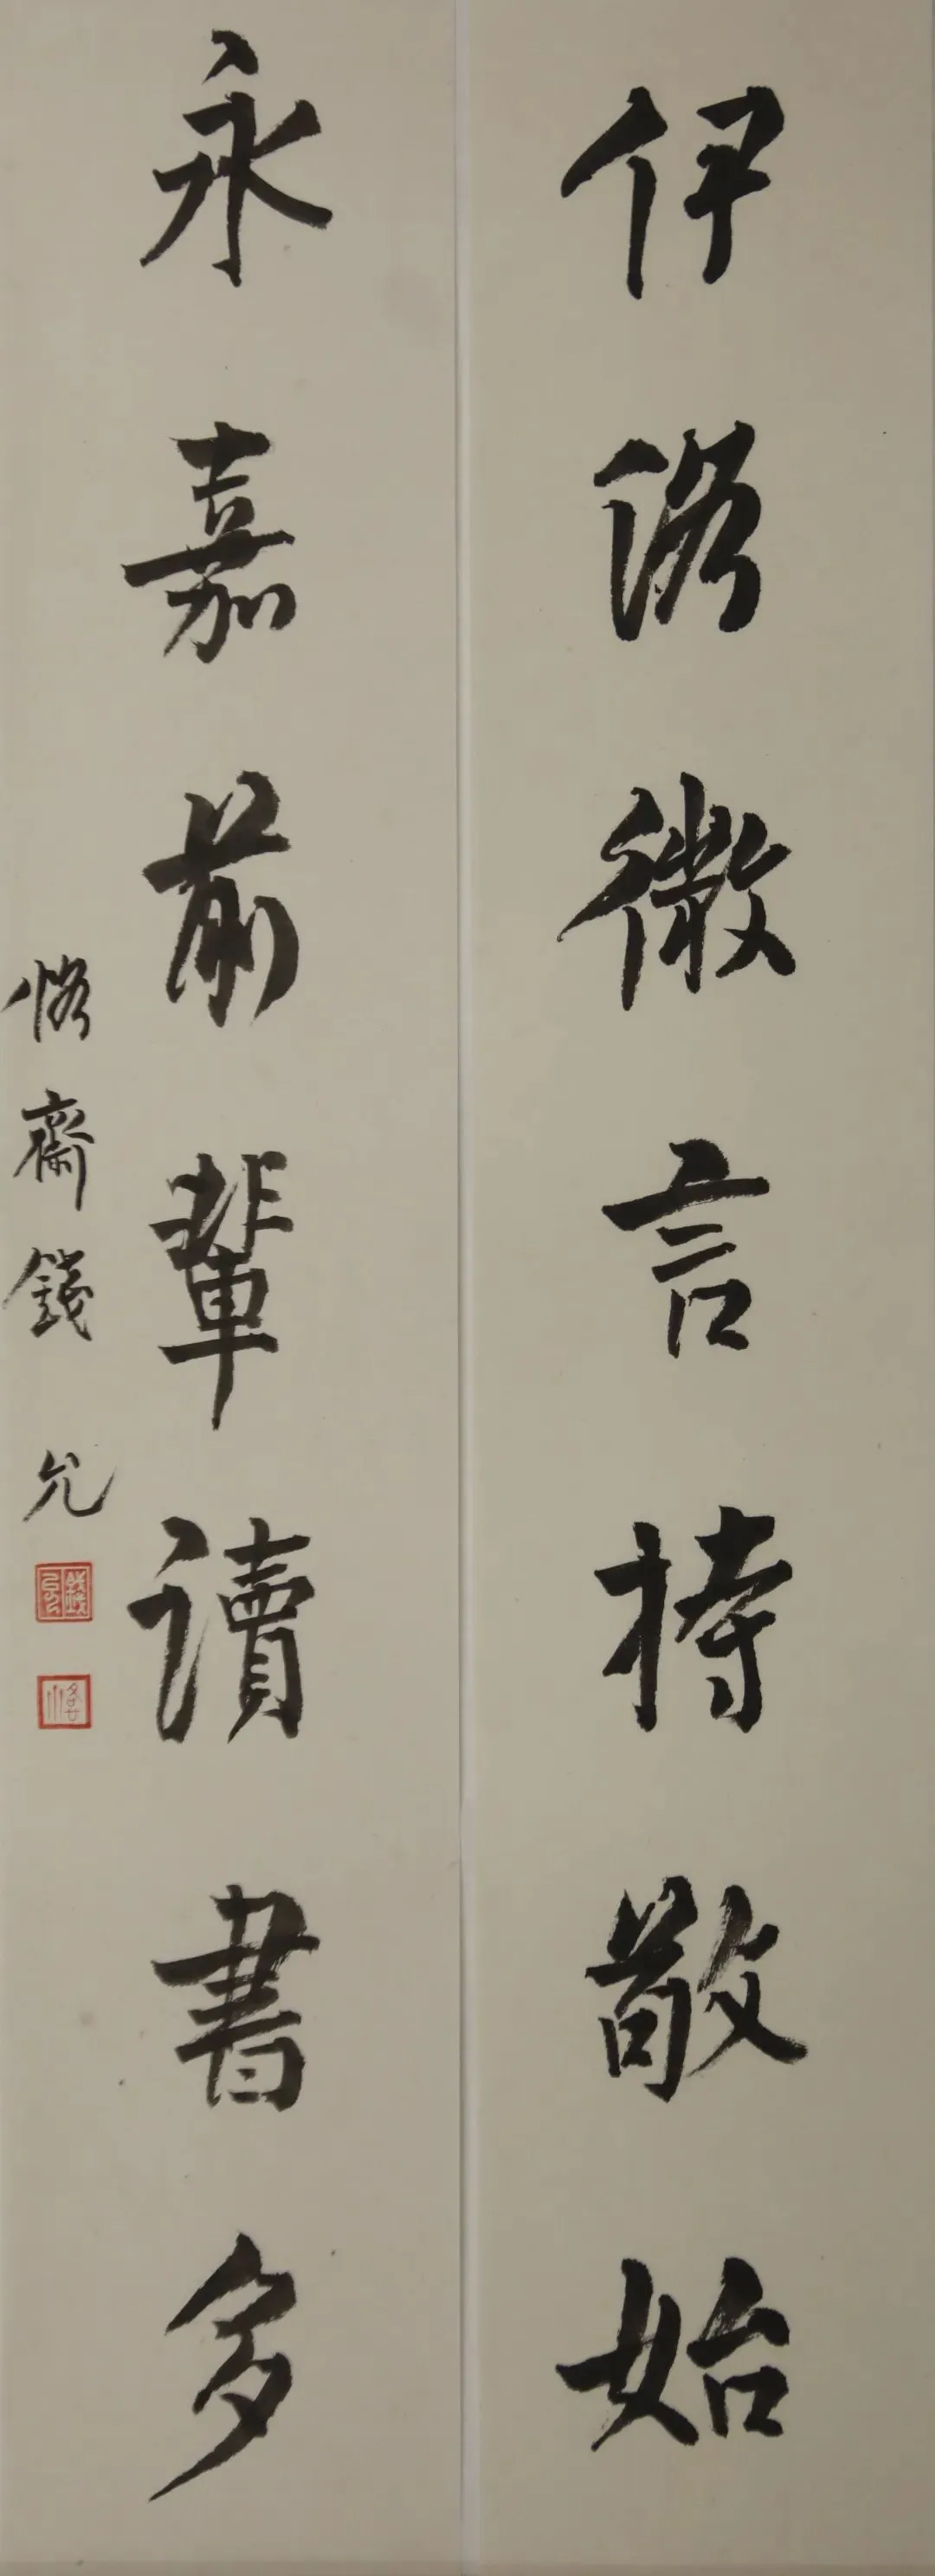 伊洛微言持敬始
永嘉前輩讀書多
恪齋錢允